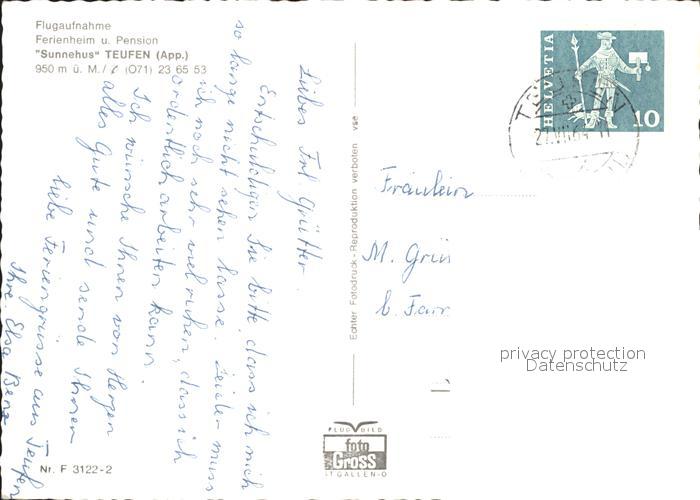 Flugaufnahme
Ferienheim u. Pension
"Sunnehus" TEUFEN (App.)
950 m ü. M./ ✆ (071) 23 65 53
Liebes Frl. Grütter.
Entschuldigen Sie bitte, dass ich mich
so lange nicht sehen lasse. Leider muss
ich noch sehr viel ruhen, dass ich
ordentlich arbeiten kann.
Ich wünsche Ihnen von Herzen
alles Gute und sende Ihnen
liebe Feriengrüsse aus Teufen
Ihre Elsa Benz
Nr. F 3122-2
Echter Fotodruck - Reproduktion verboten vse
FLUGBILD
foto
Gross
ST GALLEN-O
HELVETIA
10
TEUFEN
Fräulein
M. Grü
b. Fam
privacy protection
Datenschutz